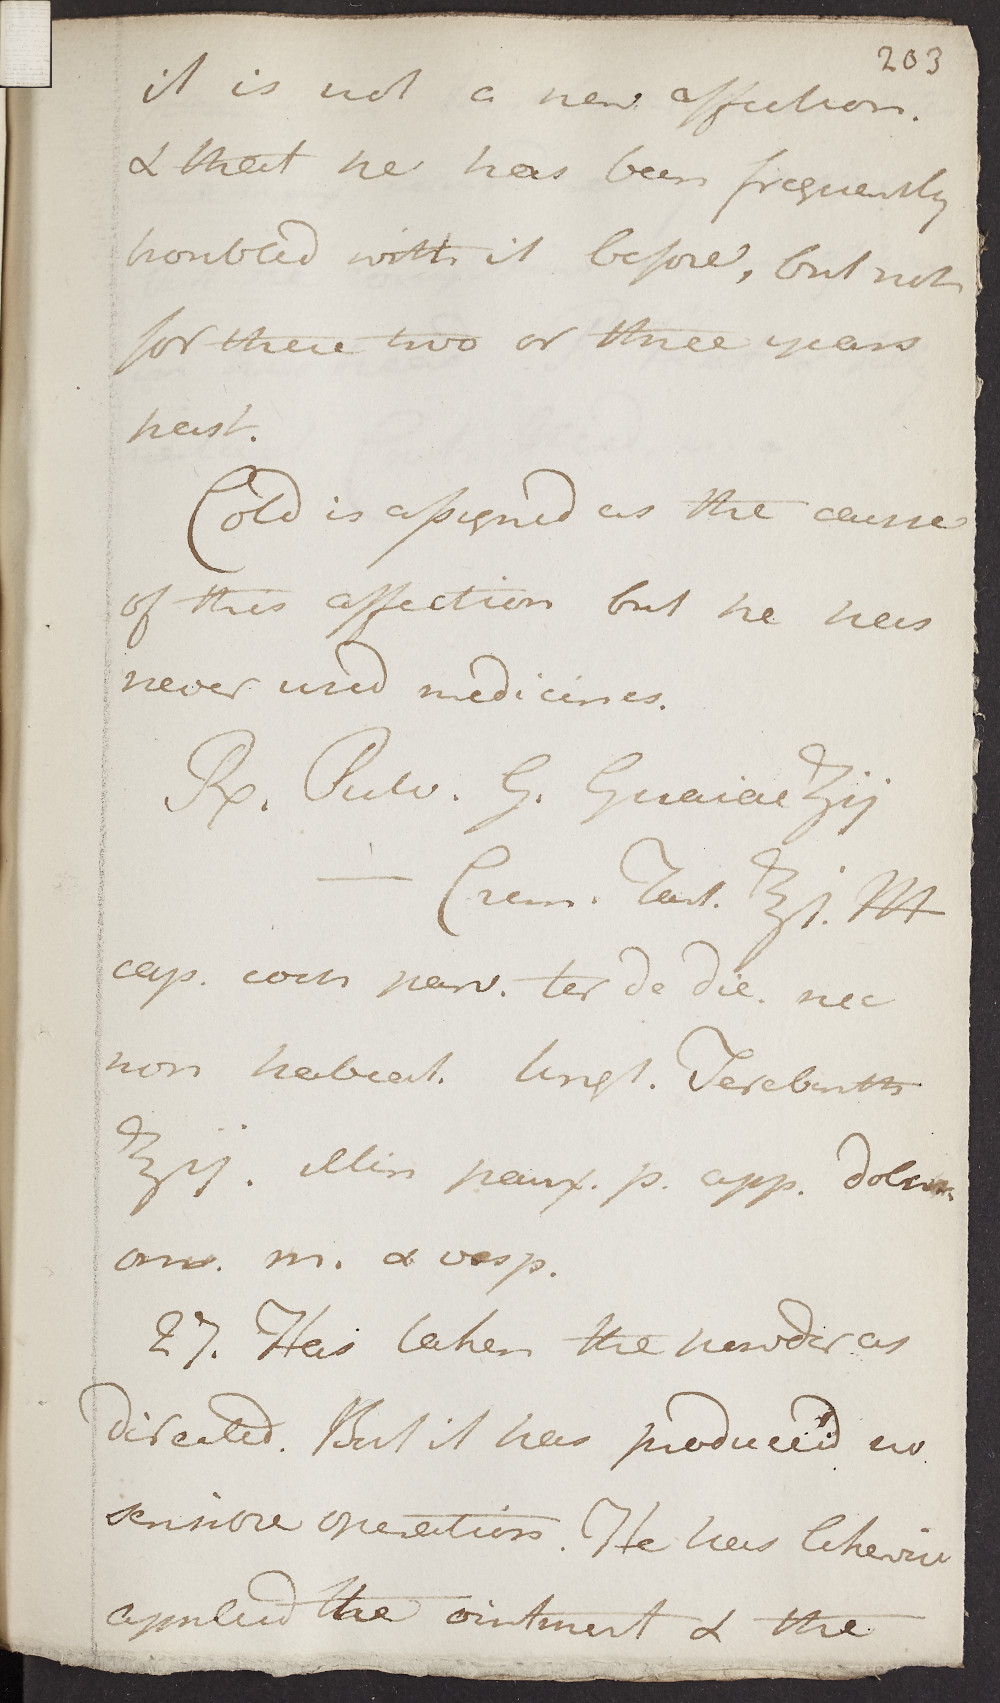 203
it is not a new affection.
& that he has been frequently
troubled with it before, but not
for these two or three years
past.
Cold is assigned as the cause
of this affection but he has
never used medicines.
Rx. Pulv. G. Guaiac ʒij
— Crem. Tart. ʒj. M
cap. coch parv. ter de die. nec
non habeat. Ungt. Terebinth
ʒij. illin paux. p. app. dolen
om. m. & vesp.
27. Has taken the powder as
directed. But it has produced no
sensible operation. He has likewise
applied the ointment & the